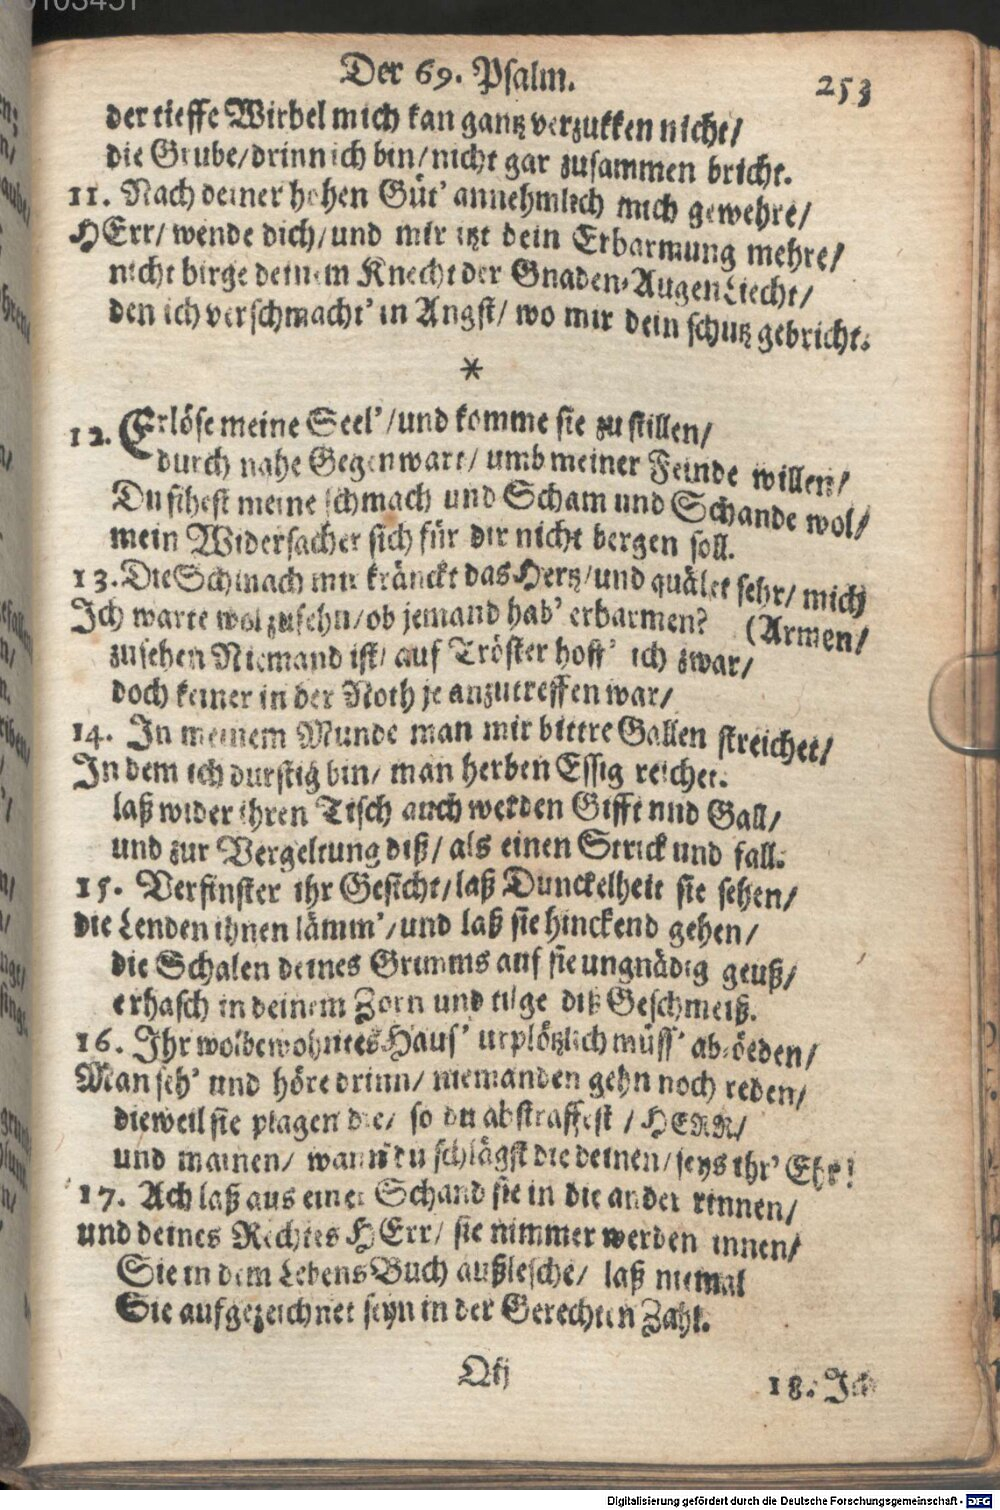 Der 69. Psalm. 253
der tieffe Wirbel mich kan gantz verzukken nicht/
die Grube/drinn ich bin/nicht gar zusammen bricht.
11. Nach deiner hohen Güt' annehmlich mich gewehre/
HErr/ wende dich/und mir itzt dein Erbarmung mehre/
nicht birge deinem Knecht der Gnaden-Augen Liecht/
den ich verschmacht' in Angst/ wo mir dein schutz gebricht.
*
12. Erlöse meine Seel'/und komme sie zu stillen/
durch nahe Gegenwart/ umb meiner Feinde willen/
Du sihest meine schmach und Scham und Schande wol/
mein Widersacher sich für dir nicht bergen soll.
13. Die Schmach mir kränckt das Hertz/und quälet sehr/ mich
Ich warte wol zusehn/ob jemand hab' erbarmen? (Armen/
zusehen Niemand ist/ auf Tröster hoff' ich zwar/
doch keiner in der Noth je anzutreffen war/
14. In meinem Munde man mir bittre Gallen streichet/
In dem ich durstig bin/ man herben Essig reichet.
laß wider ihren Tisch auch werden Gifft und Gall/
und zur Vergeltung diß/ als einen Strick und fall.
15. Verfinster ihr Gesicht/laß Dunckelheit sie sehen/
die Lenden ihnen lämm'/und laß sie hinckend gehen/
die Schalen deines Grimms auf sie ungnädig geuß/
erhasch in deinem Zorn und tilge diß Geschmeiß.
16. Ihr wolbewohntes Haus' urplötzlich müss' ab-öeden/
Man seh' und höre drinn/ niemanden gehn noch reden/
dieweil sie plagen die/ so du abstraffest / HERR/
und mainen/ wann du schlägst die deinen/seys ihr' Ehr!
17. Ach laß aus einer Schand sie in die ander rinnen/
und deines Rechtes HErr/ sie nimmer werden innen/
Sie in dem Lebens Buch außlesche/ laß niemal
Sie aufgezeichnet seyn in der Gerechten Zahl.
18. Ich
Digitalisierung gefördert durch die Deutsche Forschungsgemeinschaft - DFG